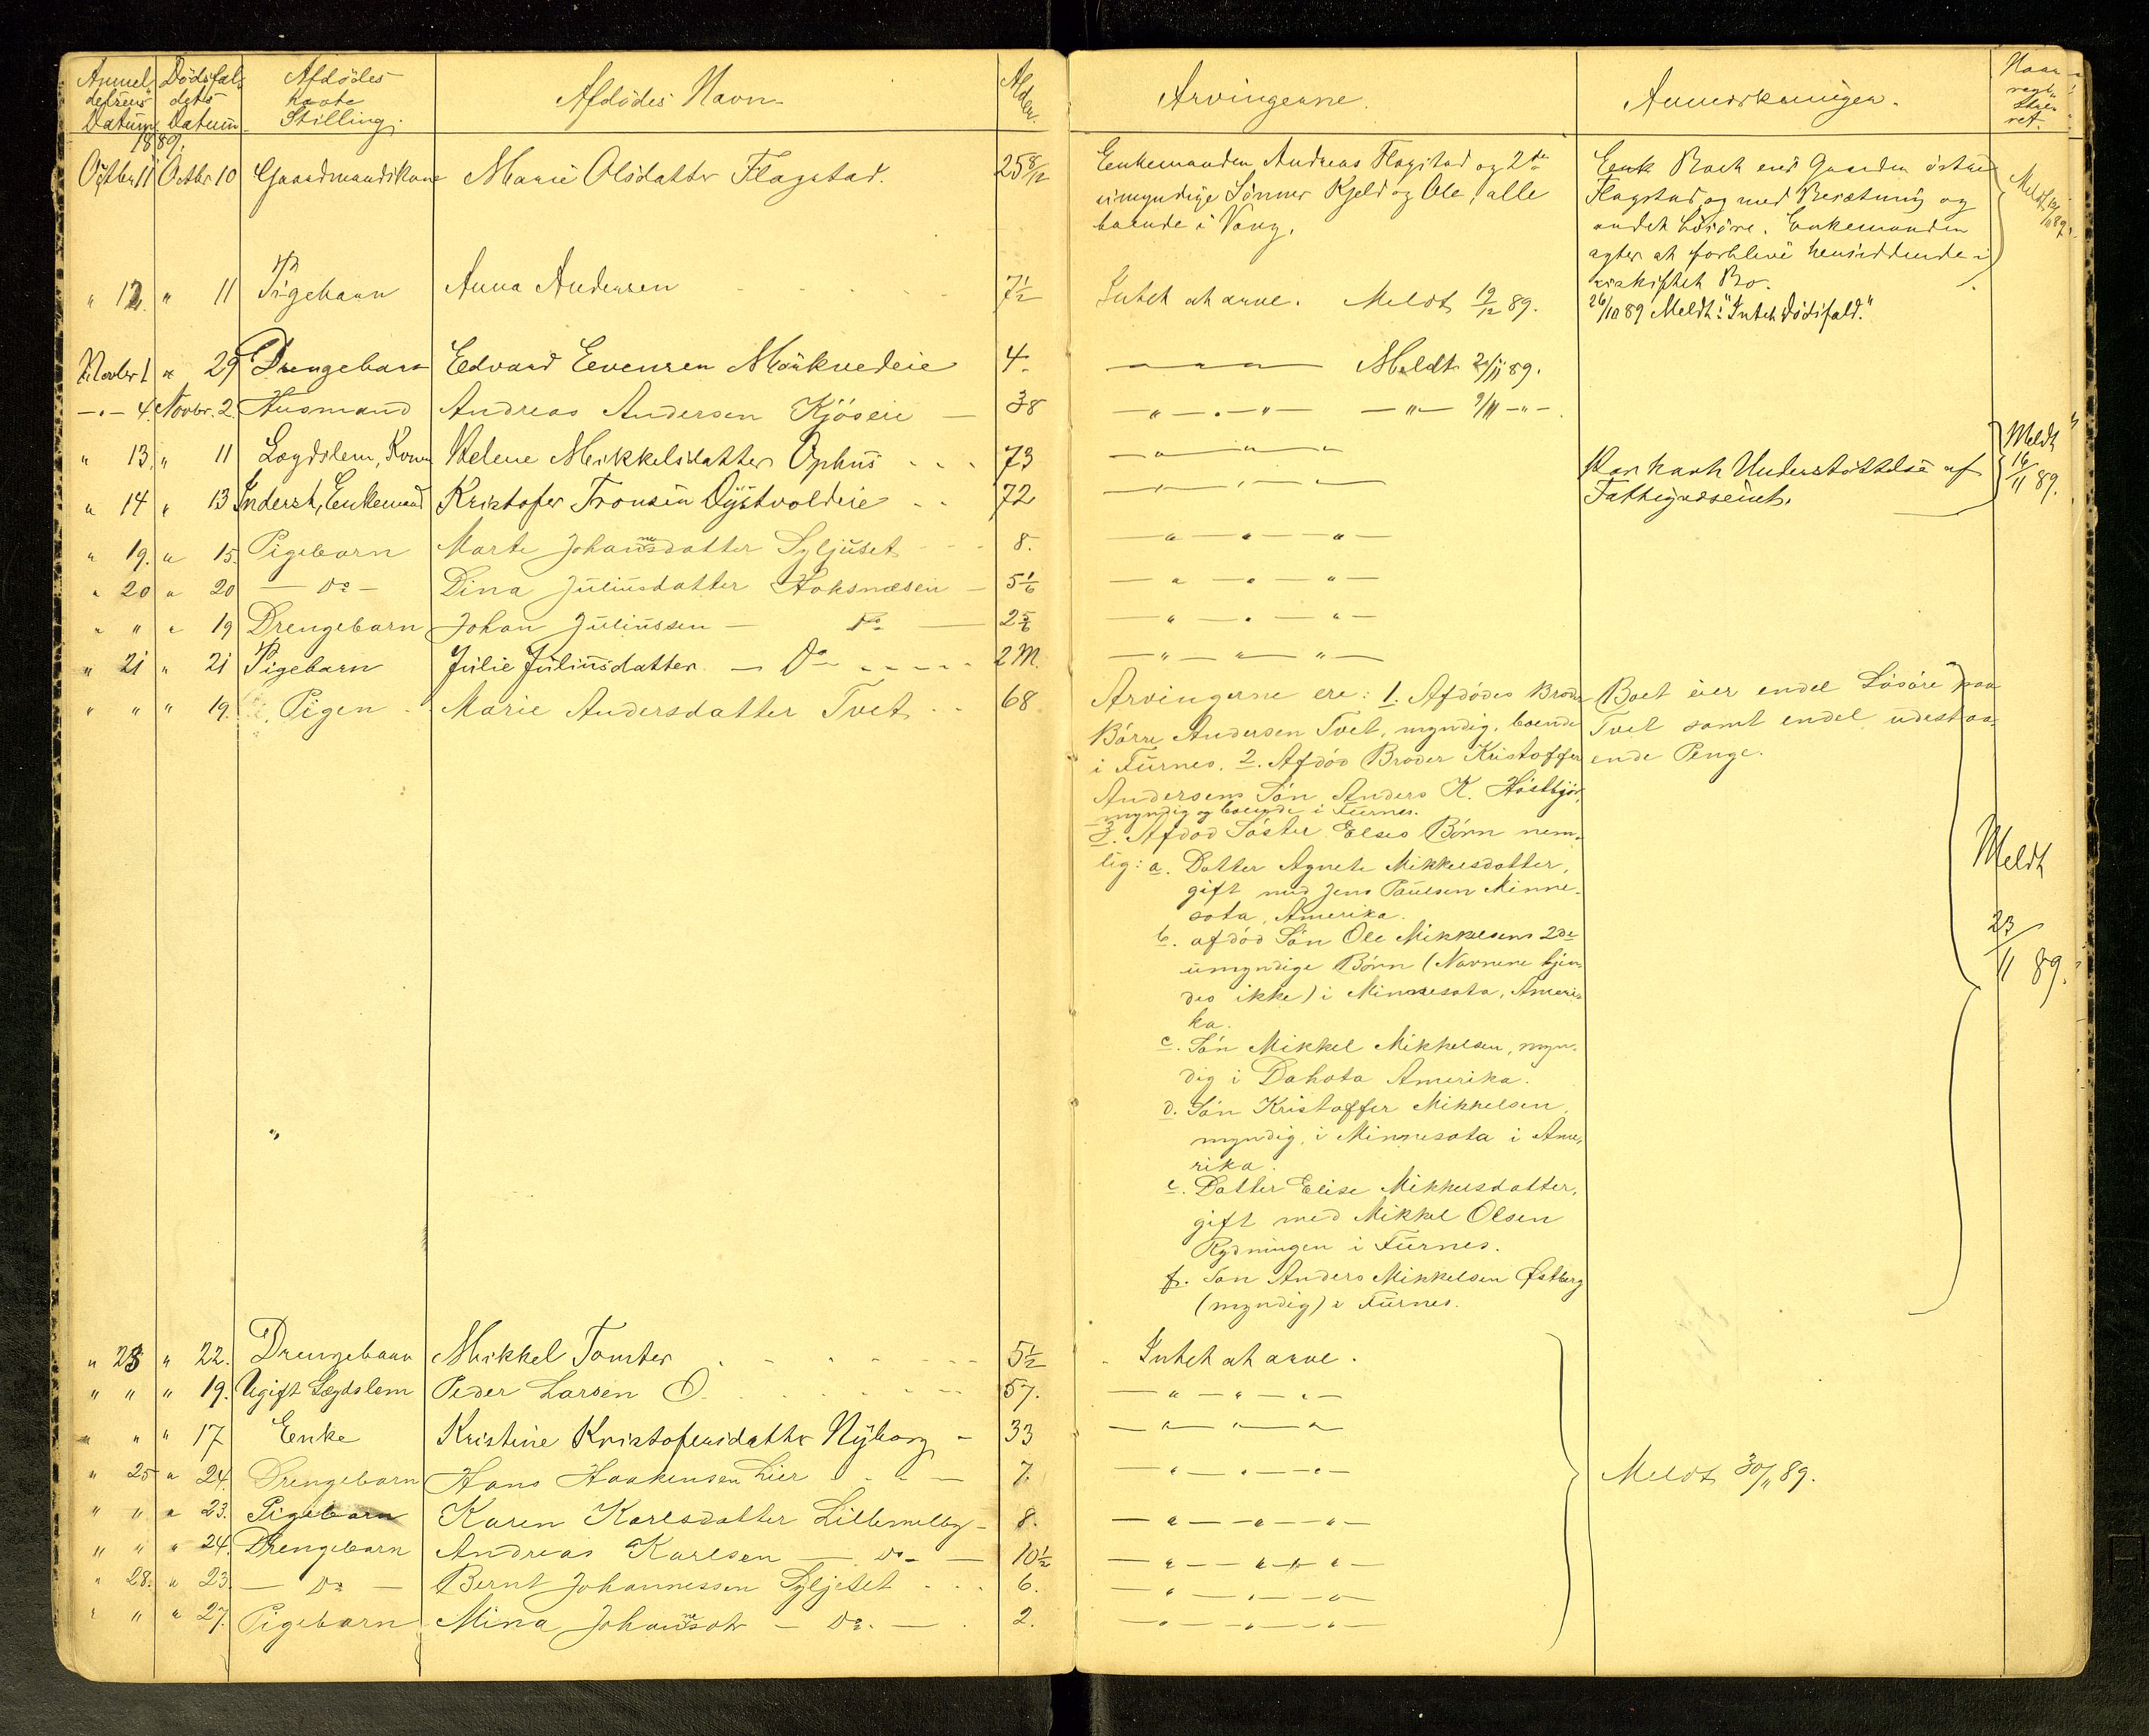 Anmel- Dödsfal- Afdödes Afdödes Navn. Alder. Arvingerne. Anmærkninger.
delsens dets havte
Datum. Datum. Stilling.
1889.
Octbr 11 Octbr 10 Gaardmandskone Marie Olsdatter Flagstad. 25 8/12 Enkemanden Andreas Flagstad og 2de
umyndige Sönner Kjeld og Ole, alle
boende i Vang.
Flagstad, og med Besætning og
andet Lösöre. Enkemanden
agter at forblive hensiddende i
uskiftet Bo.
" 12. " 11 Pigebarn Anna Andersen 7 1/2 Intet at arve. Meldt 19/12 89. 26/10 89 Meldt: "Intet Dödsfald."
Novbr 1 " 29 Drengebarn Edvard Evensen 4. — " — " — Meldt 2/11 89.
— " — 4. Novbr. 2. Husmand Andreas Andersen Kjöseie — 38 — " — " — " — — " — 9/11 — " —.
" 13. " 11 Lægdslem, Kone Helene Mikkelsdatter Ophus 73 — " — " — " — Har havt Understöttelse af Meldt 16/11 89.
" 14 " 13 Inderst, Enkemand Kristofer Tronsen 72 — " — " — " — Fattigvæsenet.
" 19. " 15. Pigebarn Marte Johannesdatter Syljuset 8. — " — " — " —
" 20 " 20 — Do — Dina Juliusdatter Hoksnæsen — 5 1/6 — " — " — " —
" " " 19 Drengebarn Johan Juliussen — Do — 2 5/6 — " — " — " —
" 21 " 21 Pigebarn Julie Juliusdatter — Do — 2 M. — " — " — " —
" " " 19. Pigen Marie Andersdatter Tvet 68 Arvingerne ere: 1. Afdödes Broder Boet eier endel Lösöre paa
Börre Andersen Tvet, myndig, boende Tvet samt endel udestaa-
i Furnes. 2. Afdöd Broder Kristoffer ende Penge.
Andersens Sön Anders K. Höstbjör,
myndig og boende i Furnes.
3. Afdöd Söster Elses Börn nem-
lig: a. Datter Agnete Mikkelsdatter,
gift med Jens Paulsen Minne-
sota, Amerika.
Meldt 23/11 89.
b. afdöd Sön Ole Mikkelsens 2de
umyndige Börn (Navnene kjen-
des ikke) i Minnesota, Ameri-
ka.
c. Sön Mikkel Mikkelsen, myn-
dig i Dakota Amerika.
d. Sön Kristoffer Mikkelsen,
myndig, i Minnesota i Ame-
rika.
e. Datter Elise Mikkelsdatter,
gift med Mikkel Olsen
Rydningen i Furnes.
f. Sön Anders Mikkelsen Østberg
(myndig) i Furnes.
" 23 " 22. Drengebarn Mikkel Tomter 5 1/2 Intet at arve.
" " " 19. Ugift Lægdslem Peder Larsen O. 57. — " — " — " —
" " " 17 Enke Kristine Kristofersdatter Nyborg — 33 — " — " — " —
" 25 " 24. Drengebarn Hans Haakensen Lier 7. — " — " — " — Meldt 30/11 89.
" " " 23. Pigebarn Karen Karlsdatter Lillemelby — 8. — " — " — " —
" " " 24. Drengebarn Andreas Karlsen — Do — 10 1/2 — " — " — " —
" 28. " 23. — Do — Bernt Johannessen Syljeset 6. — " — " — " —
" " " 27. Pigebarn Mina Johannesdtr — Do. — 2. — " — " — " —